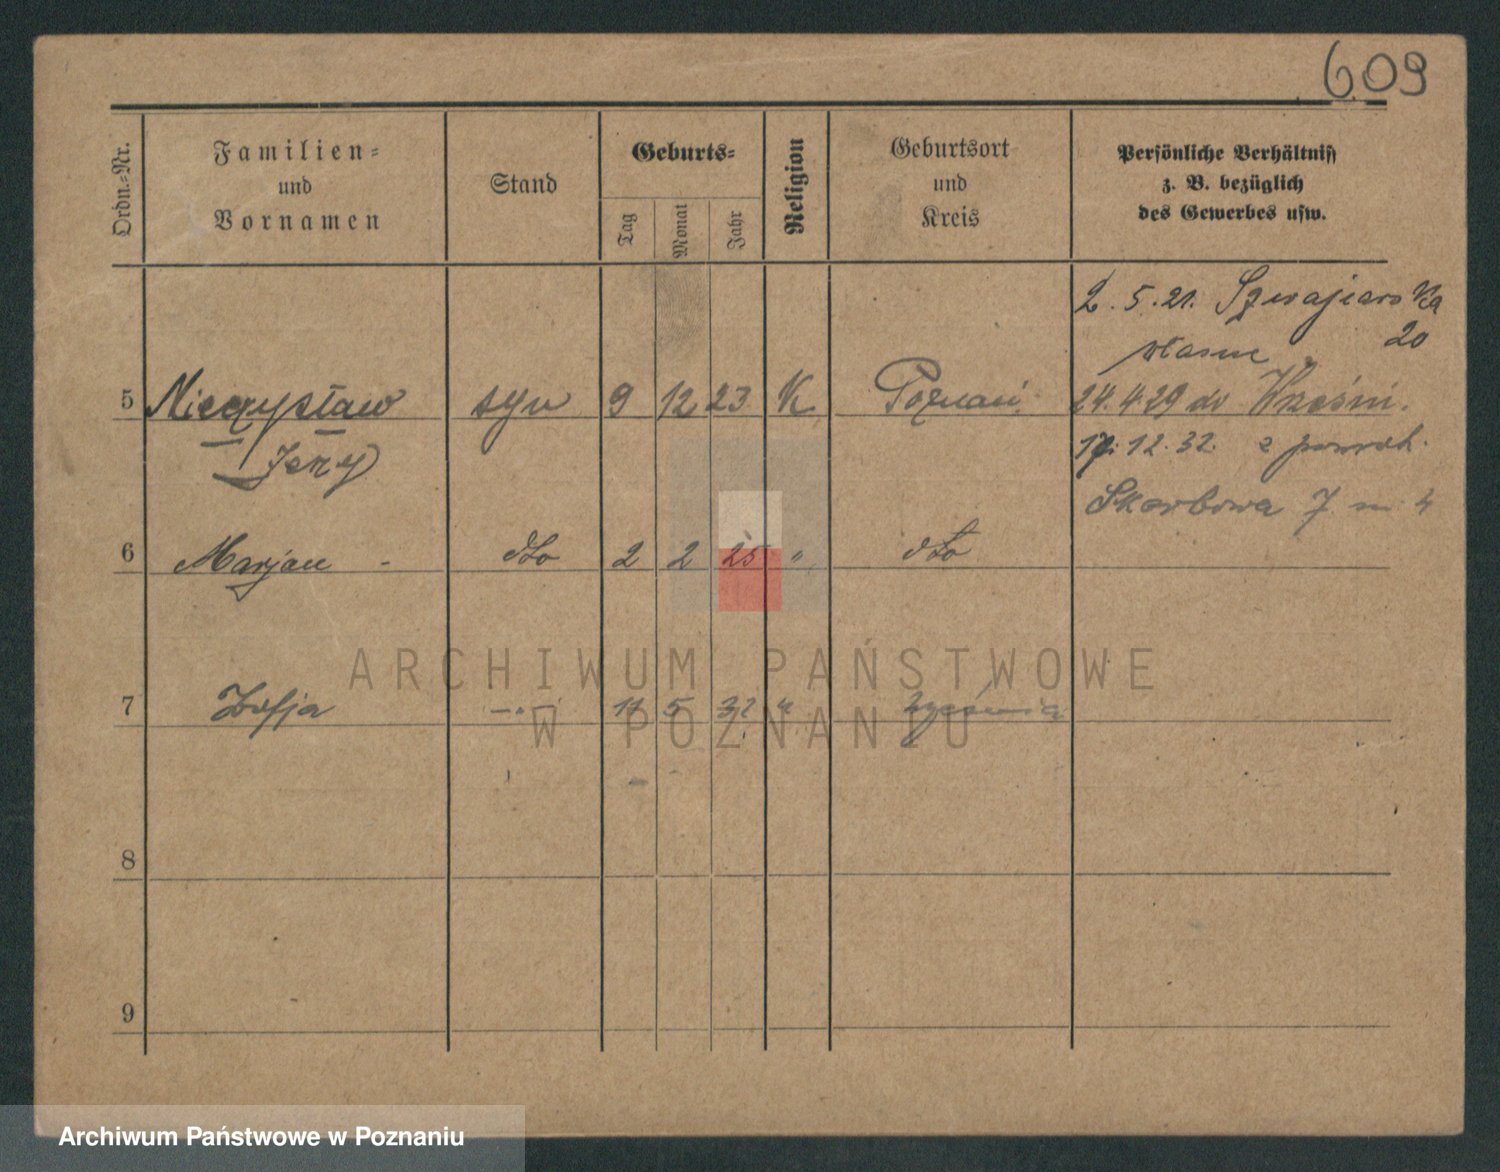 609
Ordn.-Nr.
Familien-
und
Vornamen
Stand
Geburts-
Tag
Monat
Jahr
Religion
Geburtsort
und
Kreis
Persönliche Verhältniss
z. B. bezüglich
des Gewerbes usw.
2.5.21. Szwajcarska
własne 20
5 Mieczysław syn 9 12 23 K Poznań 24.4.29 do Wrześni.
Jerzy
17.12.32. z powrot.
Skarbowa 7 m 4
6 Marjan - dto 2 2 25 " dto
7 Zofja —"— 5 32 "
8
9
ARCHIWUM PAŃSTWOWE
W POZNANIU
Archiwum Państwowe w Poznaniu